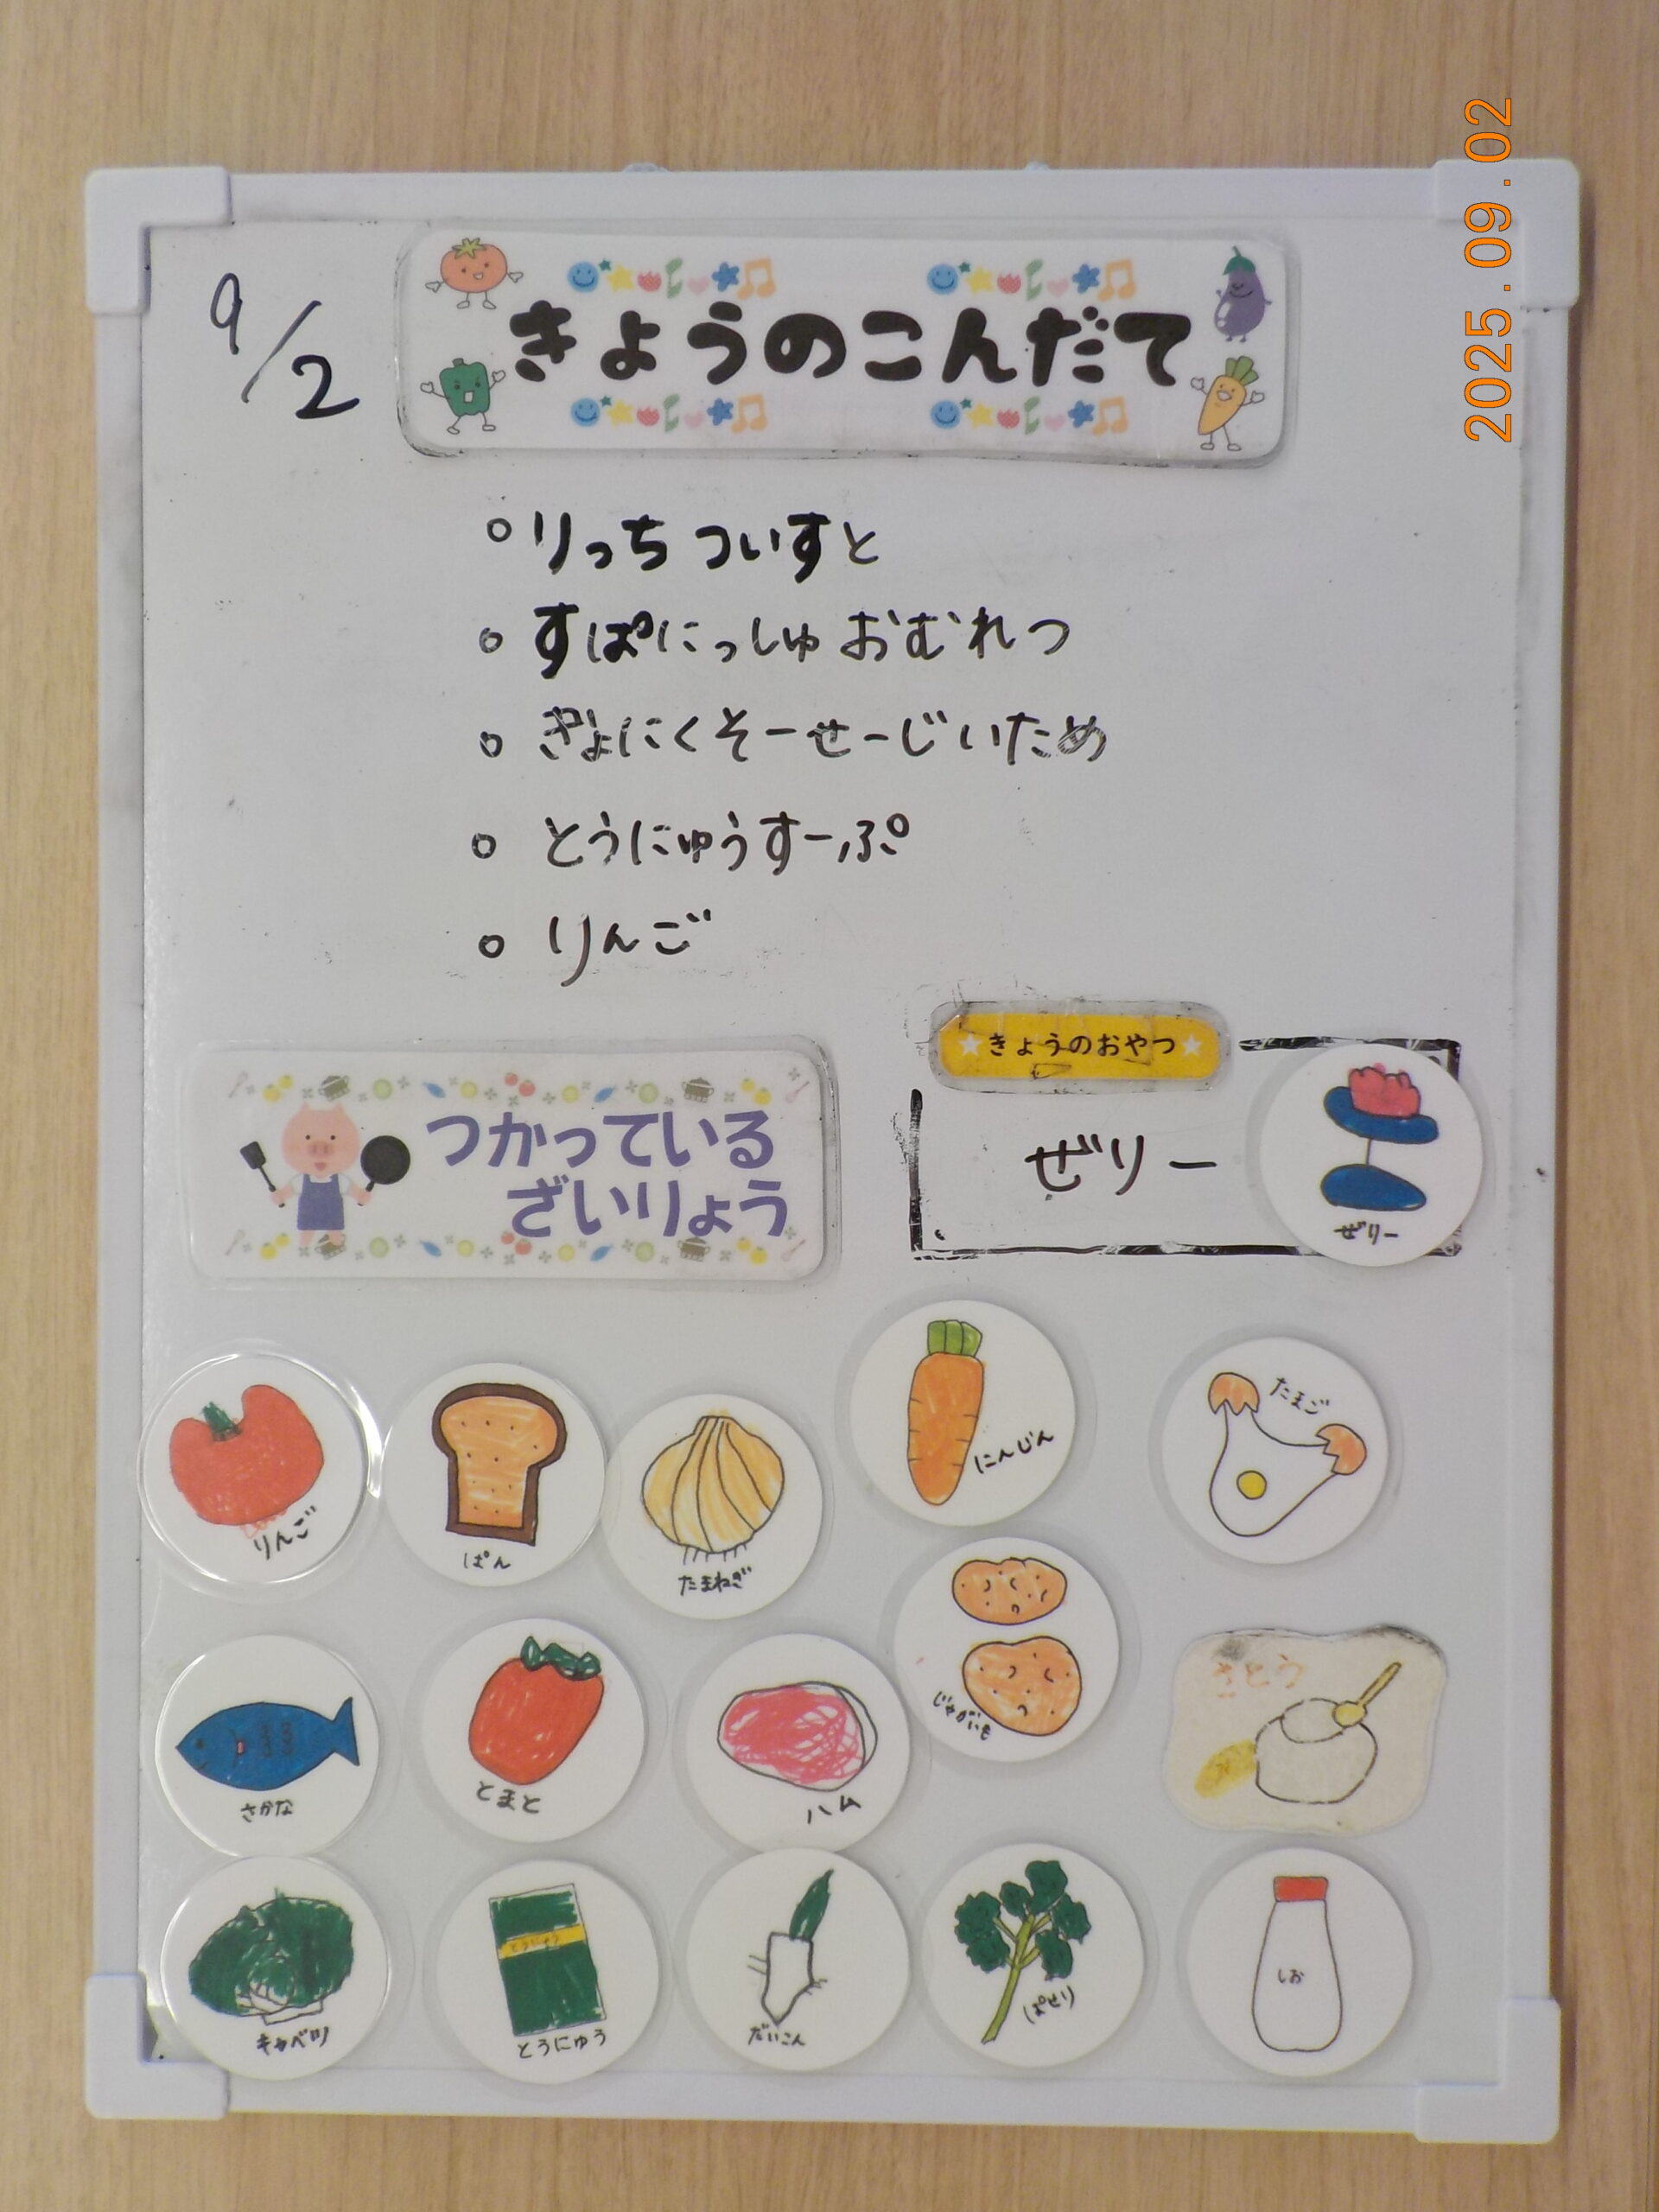 2025.09.02
9/2
きょうのこんだて
○りっちついすと
○すぱにっしゅおむれつ
○ぎょにくそーせーじいため
○とうにゅうすーぷ
○りんご
★きょうのおやつ★
ぜりー
ぜりー
つかっている
ざいりょう
りんご
ぱん
たまねぎ
にんじん
たまご
さかな
とまと
ハム
じゃがいも
さとう
キャベツ
とうにゅう
とうにゅう
だいこん
ぱせり
しお